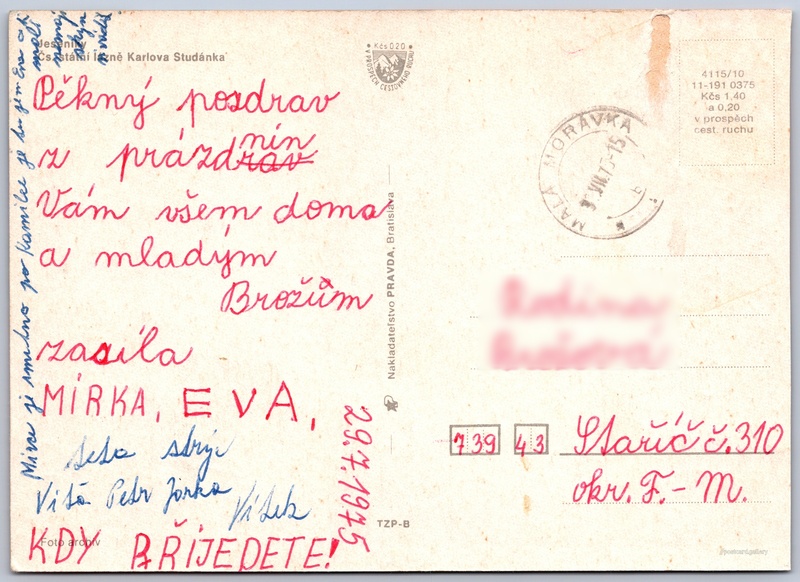 Jeseníky
Čs. státní lázně Karlova Studánka
Pěkný pozdrav
z prázdrav nin
Vám všem doma
a mladým
Brožům
zasíla
MÍRKA, EVA,
teta strýc
Víťa Petr Jirka
Vítek
KDY PŘIJEDETE!
29.7.1975
Foto archiv
Mirce je smutno po Kamilce je tu jen Eva a
Kčs 020
V PROSPĚCH CESTOVNÍHO RUCHU
Nakladatelství PRAVDA, Bratislava
TZP-B
4115/10
11-191 0375
Kčs 1,40
a 0,20
v prospěch
cest. ruchu
MALÁ MORÁVKA
739 43 Staříč č. 310
okr. F.-M.